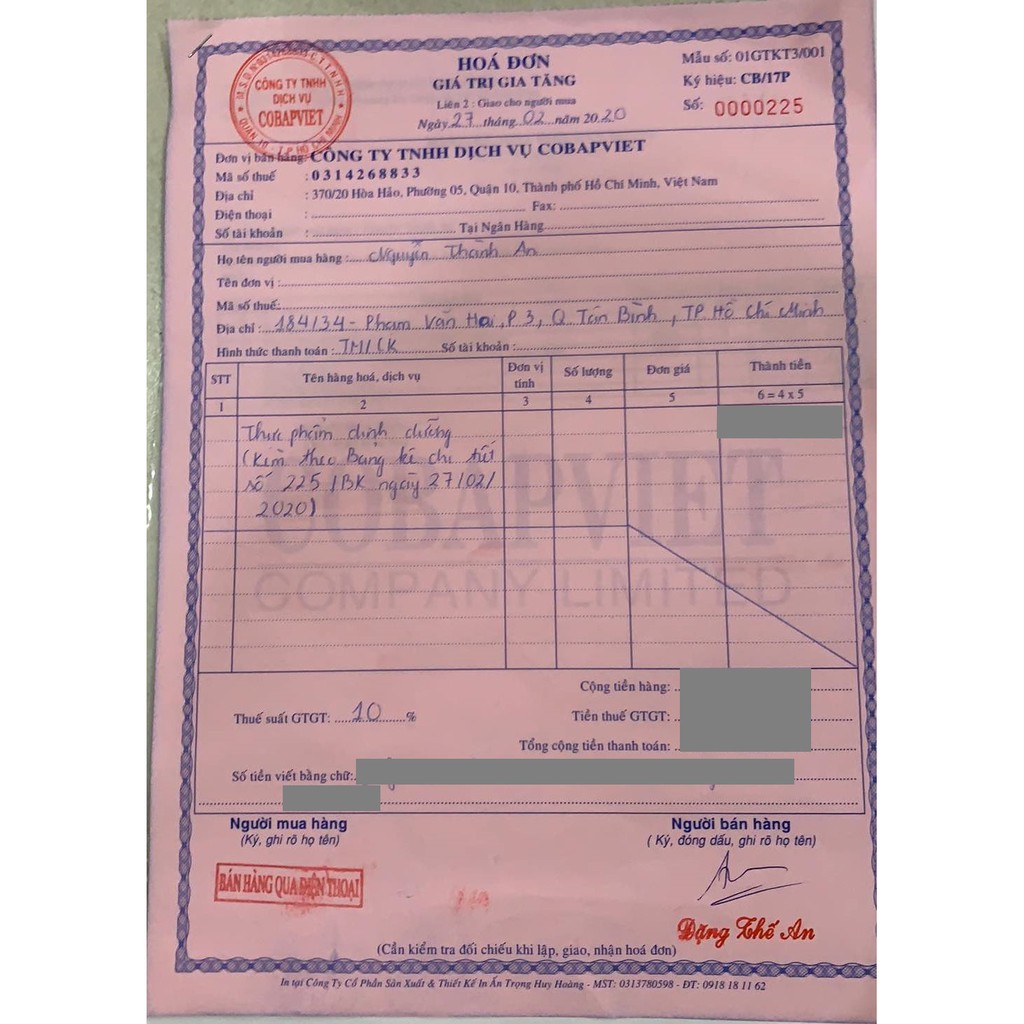 HOÁ ĐƠN
GIÁ TRỊ GIA TĂNG
Liên 2 : Giao cho người mua
Ngày 27 tháng 02 năm 2020
Mẫu số: 01GTKT3/001
Ký hiệu: CB/17P
Số: 0000225
CÔNG TY TNHH
DỊCH VỤ
COBAPVIET
QUẬN 10 - T.P HỒ CHÍ MINH
Đơn vị bán hàng: CÔNG TY TNHH DỊCH VỤ COBAPVIET
Mã số thuế : 0314268833
Địa chỉ : 370/20 Hòa Hảo, Phường 05, Quận 10, Thành phố Hồ Chí Minh, Việt Nam
Điện thoại : Fax:
Số tài khoản : Tại Ngân Hàng
Họ tên người mua hàng : Nguyễn Thành An
Tên đơn vị :
Mã số thuế:
Địa chỉ : 184/34 - Phạm Văn Hai, P 3, Q Tân Bình, TP Hồ Chí Minh
Hình thức thanh toán : TM/CK Số tài khoản :
STT Tên hàng hoá, dịch vụ Đơn vị tính Số lượng Đơn giá Thành tiền
1 2 3 4 5 6 = 4 x 5
Thực phẩm dinh dưỡng
(Kèm theo Bảng kê chi tiết
số 225 /BK ngày 27/02/
2020)
COBAPVIET
COMPANY LIMITED
Cộng tiền hàng:
Thuế suất GTGT: 10 % Tiền thuế GTGT:
Tổng cộng tiền thanh toán:
Số tiền viết bằng chữ:
Người mua hàng Người bán hàng
(Ký, ghi rõ họ tên) ( Ký, đóng dấu, ghi rõ họ tên)
BÁN HÀNG QUA ĐIỆN THOẠI
Đặng Thế An
(Cần kiểm tra đối chiếu khi lập, giao, nhận hoá đơn)
In tại Công Ty Cổ Phần Sản Xuất & Thiết Kế In Ấn Trọng Huy Hoàng - MST: 0313780598 - ĐT: 0918 18 11 62